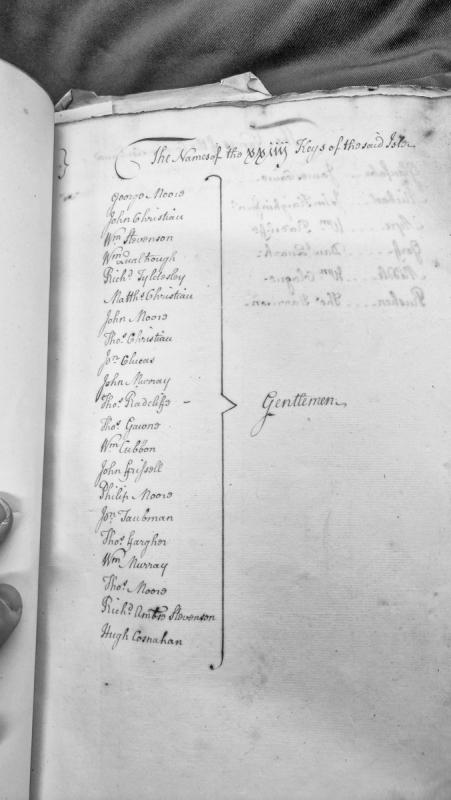 The Names of the xxiiij Keys of the said Isle
George Moore
John Christian
Wm Stevenson
Wm Qualtrough
Richd Tyldesley
Matths Christian
John Moore
Thos Christian
Jon Clucas
John Murray
Thos Radcliffe
Thos Gawne
Wm Cubbon
John Frissell
Philip Moore
Jon Taubman
Thos Hargher
Wm Murray
Thos Moore
Richd Ambro Stevenson
Hugh Cosnahan
Gentlemen